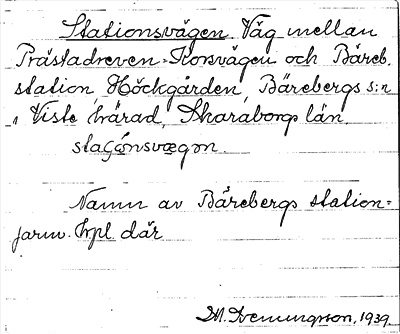 Stationsvägen. Väg mellan
Prästadreven-Korsvägen och Båreb.
station, Höckgården, Bärebergs s:n
i Viste härad, Skaraborgs län.
staʃónsvægɘn.
Namn av Bårebergs station=
jarnv. hpl. där
M. Hemmingsson, 1939.